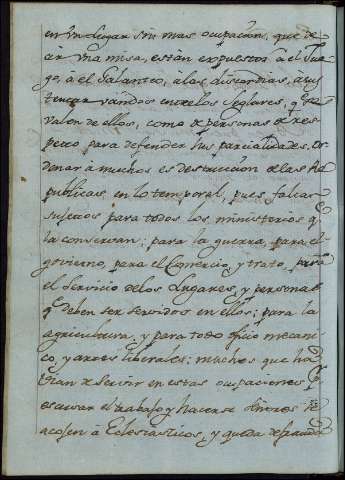 en un lugar sin mas ocupacion, que de
ir una misa, están expuestos á el Jue
go, á el Galanteo, á las discordias, a sus
tentar vándos entre los Seglares, q̃ se
valen de ellos, como de personas de res
pecto para defender sus parcialidades. Or
denar á muchos es destruccion de las Re
publicas en lo temporal, pues faltan
sujetos para todos los ministerios q̃
la conservan; para la guerra, para el
govierno, para el Comercio, y trato, para
el servicio de los Lugares, y personas
q̃ deben ser servidos en ellos; para la
agricultura, y para todo oficio mecani
co, y artes liberales; muchos que ha
vian de servir en estas ocupaciones p.r
escusar el trabajo y hacerse
acojen á Eclesiasticos, y queda defrauda